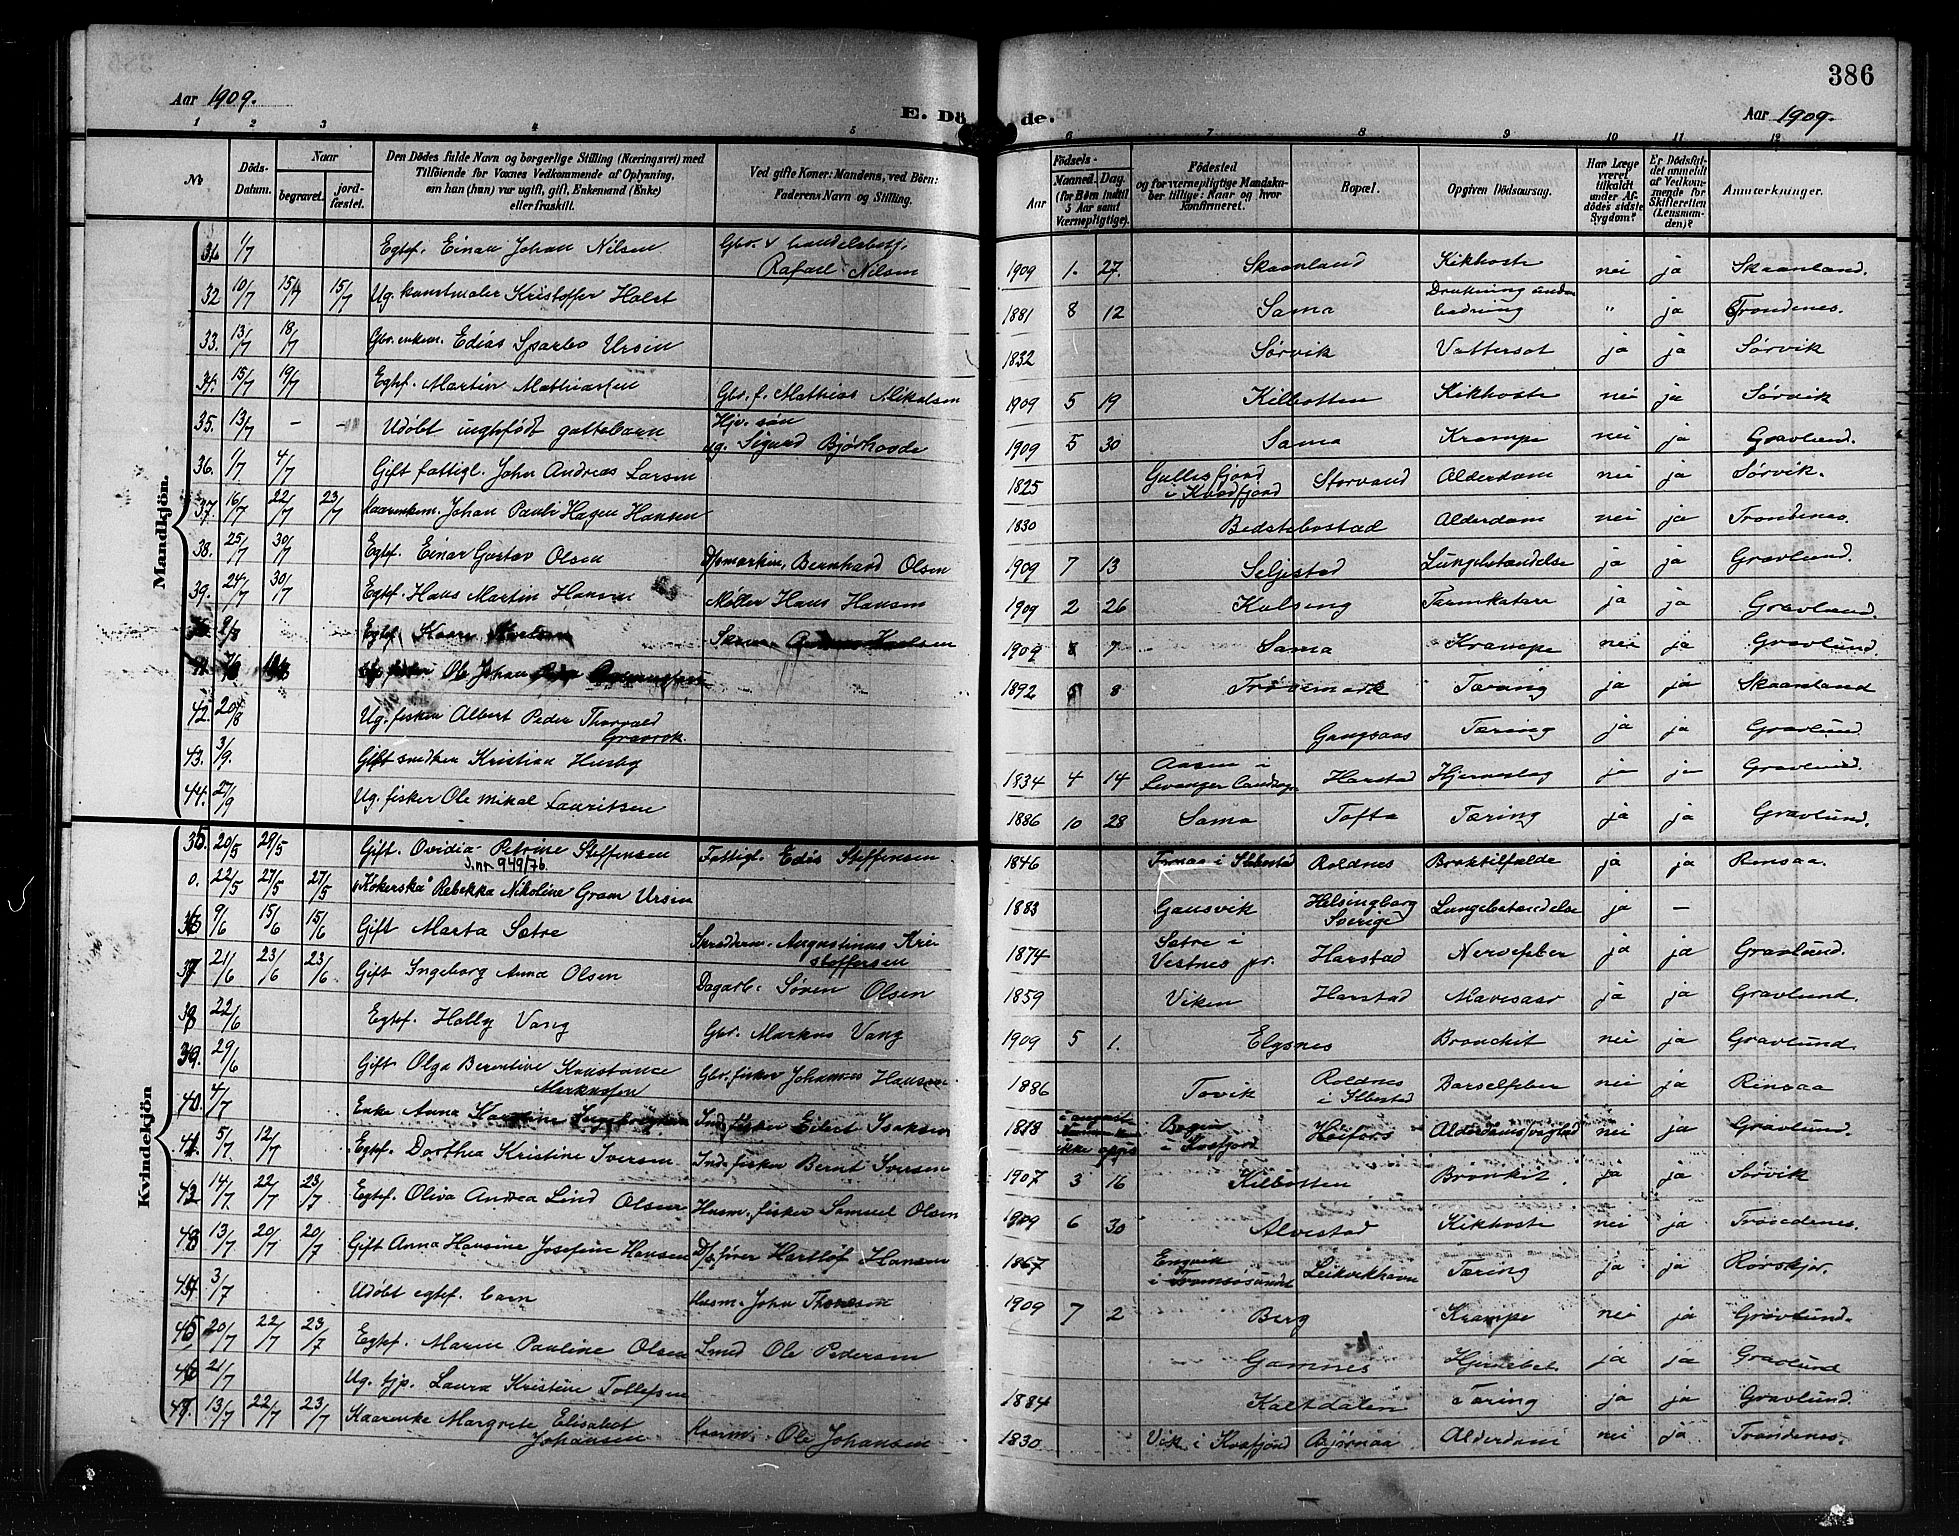 386
Aar 1909.
E. Döde.
Aar 1909.
1 2 3 4 5 6 7 8 9 10 11 12
No
Döds-Datum.
Naar
begravet.
jordfæstet.
Den Dödes fulde Navn og borgerlige Stilling (Næringsvei) med
Tilföiende for Voxnes Vedkommende af Oplysning,
om han (hun) var ugift, gift, Enkemand (Enke)
eller fraskilt.
Ved gifte Koner: Mandens, ved Börn:
Faderens Navn og Stilling.
Födsels-
Aar
Maaned. Dag.
(for Börn indtil
5 Aar samt
Værnepligtige).
Födested
og for værnepligtige Mandska-
ber tillige: Naar og hvor
konfirmeret.
Bopæl.
Opgiven Dödsaarsag.
Har Læge
været
tilkaldt
under Af-
dödes sidste
Sygdom?
Er Dödsfal-
det anmeldt
af Vedkom-
mende for
Skifteretten
(Lensman-
den)?
Anmærkninger.
Mandkjön.
31. 1/7 Egtef. Einar Johan Nilsen Gbr. & handelsbetj. Rafael Nilsen 1909 1. 27. Skaanland Kikhoste nei ja Skaanland.
32 10/7 15/7 15/7 Ug. kunstmaler Kristoffer Holst 1881 8 12 Sama Drukning under badning " ja Trondenes.
33. 13/7 18/7 Gbr. enkem. Edias Sparbo Ursin 1832 Sørvik Vattersot ja ja Sørvik
34. 15/7 19/7 Egtef. Martin Mathiassen Gbr. f. Mathias Mikalsen 1909 5 19 Kilbotten Kikhoste nei ja Sørvik
35. 13/7 - - Udöbt uegtefödt guttebarn Hjv. søn ug. Sigurd Bjørhovde 1909 5 30 Sama Krampe nei ja Gravlund.
36. 1/7 4/7 Gift fattigl. John Andreas Larsen 1825 Gullesfjord i Kvædfjord Storvand Alderdom nei ja Sørvik.
37. 16/7 22/7 23/7 Kaarenkem. Johan Paul Hagen Hansen 1830 Bedstebostad Alderdom nei ja Trondenes.
38. 25/7 30/7 Egtef. Einar Gustav Olsen Bernhard Olsen 1909 7 13 Seljestad Lungebetændelse ja ja Gravlund.
39. 24/7 30/7 Egtef. Hans Martin Hansen Møller Hans Hansen 1909 2 26 Kulseng Tarmkatarr ja ja Gravlund.
9/8 Egtef. Kaare 1909 8 7 Sama Krampe nei ja Gravlund.
fisker Ole Johan 1892 8 Trøsemark Tæring ja ja Skaanland
42. 20/8 Ug. fisker Albert Peder Thorvald Gangsaas Tæring ja ja Gravlund.
43. 3/9. Gift snedker Kristian Husby 1834 4 14 Aasen i Levanger landsogn Harstad Hjerneslag ja ja Gravlund.
44. 27/9 Ug. fisker Ole Mikal Lauritsen 1886 10 28 Sama Tofta Tæring ja ja Gravlund.
Kvindekjön
35 20/5 29/5 Gift. Ovidia Petrine Steffensen Fattigl. Edis Steffensen 1846 Roldnes Bruktilfælde ja ja Rensaa.
J.nr. 949/76
0. 22/5 27/5 27/5 "Kokerska" Rebekka Nikoline Gram Ursin 1883 Gausvik Helsingborg Sverige Lungebetændelse ja -
36 9/6 15/6 15/6 Gift Marta Sætre Skrædderm. Augustinus Kristoffersen 1874 Sætre i Vestnes pr. Harstad Nervefeber ja ja Gravlund.
37 21/6 23/6 23/6 Gift Ingeborg Anna Olsen Dagarb. Sören Olsen 1859 Viken Harstad Mavesaar ja ja Gravlund.
38 22/6 Egtef. Hally Vang Gbr. Markus Vang 1909 5 1. Elgsnes Bronchit nei ja Gravlund.
39. 29/6 Gift Olga Berentine Konstance Markussen Gbr. fisker Johannes Hansen 1886 Tovik Roldnes i Ibestad Barselfeber nei ja Rensaa
40. 4/7 Enke Anna Ind. fisker Eilert Isaksen 1818 i Kvæfjord Alderdomssvaghed nei ja Gravlund.
41 5/7 12/7 Egtef. Dorthea Kristine Iversen Ind. fisker Bernt Iversen 1907 3 16 Kilbotten Bronkit. ja ja Sørvik
42 14/7 22/7 23/7 Egtef. Oliva Andrea Lind Olsen Husm. fisker Samuel Olsen 1909 6 30 Alvestad Kikhoste nei ja Trondenes.
43 13/7 20/7 20/7 Gift Anna Hansine Josefine Hansen D/s fører Hartlöf Hansen 1867 Engvik i Tromsøsundet Leikvikhavn Tæring ja ja Rørskjær.
44 3/7 Udöbt egtef. barn Husm. John Thoresen 1909 7 2 Berg Krampe nei ja Gravlund.
45 20/7 22/7 23/7 Egtef. Maren Pauline Olsen Smed Ole Pedersen Gamnes ja ja Gravlund
46 21/7 Ug. tjp. Laura Kristine Tollefsen 1884 Kaltdalen Tæring ja ja Gravlund.
47. 13/7 22/7 23/7 Kaarenke Margrete Elisabet Johansen Kaarm. Ole Johansen 1830 Vik i Kvæfjord Bjørnaa Alderdom nei ja Trondenes.